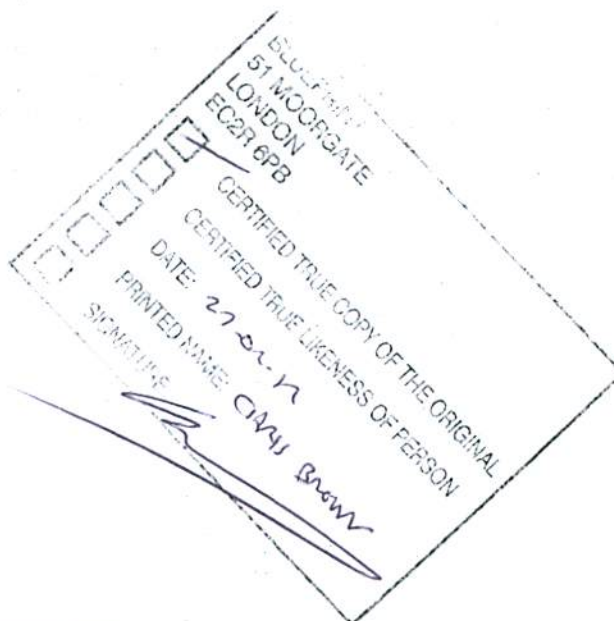 51 MOORGATE
LONDON
EC2R 6PB
CERTIFIED TRUE COPY OF THE ORIGINAL
CERTIFIED TRUE LIKENESS OF PERSON
DATE:
PRINTED NAME: CHRIS BROWN
SIGNATURE